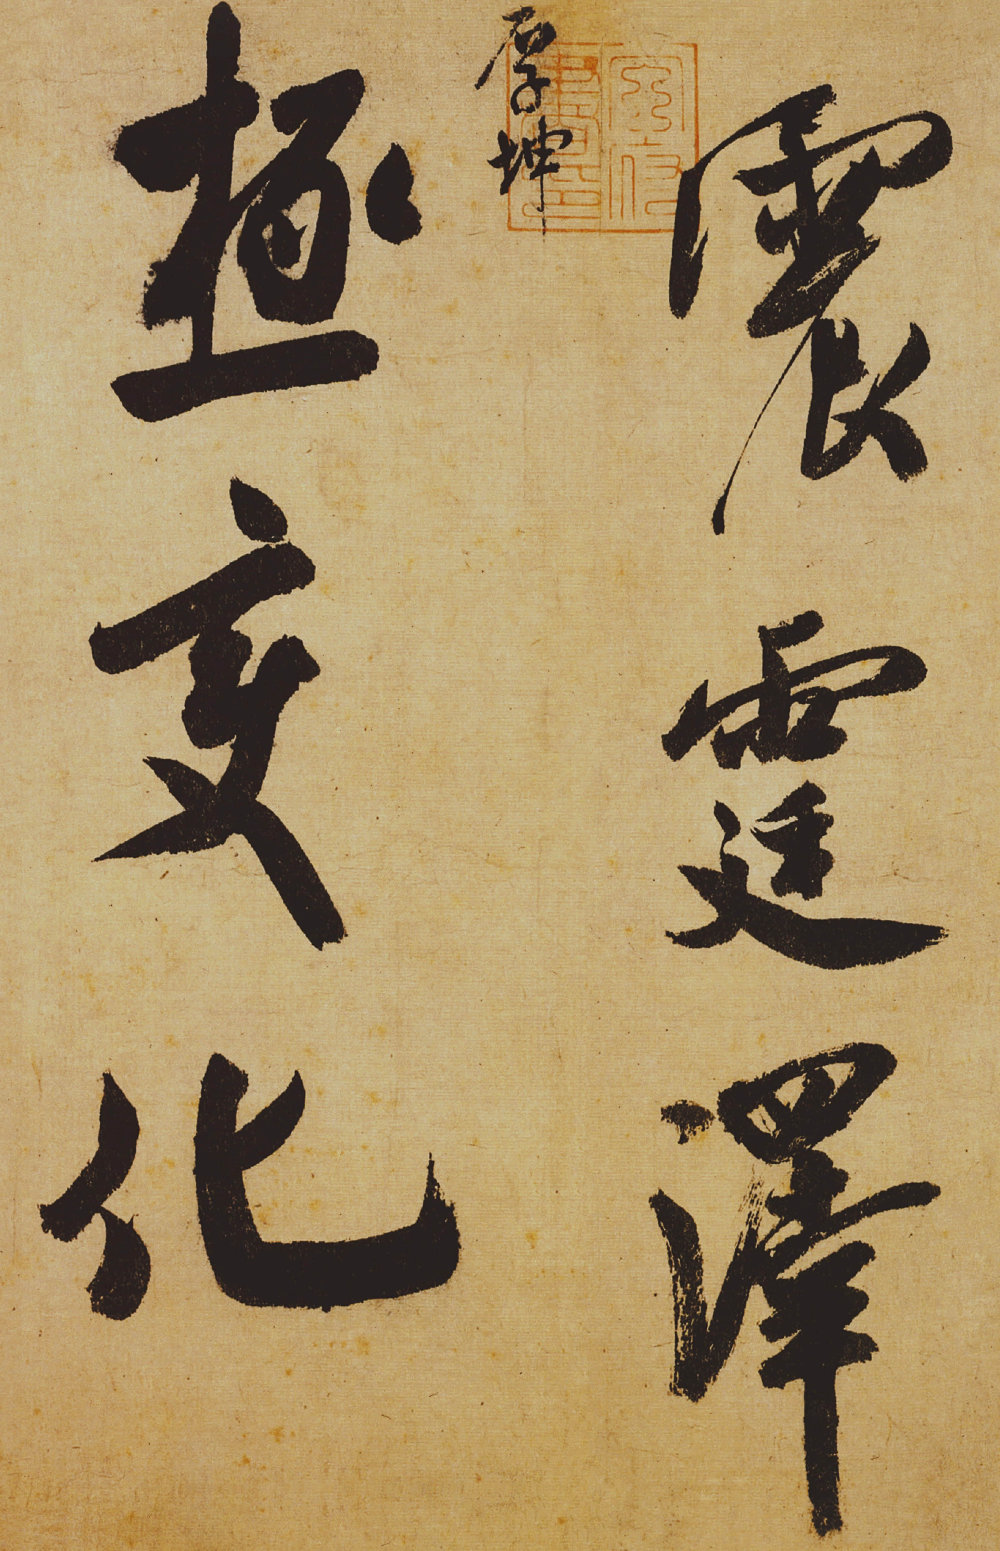 震霆澤
厚坤
極變化